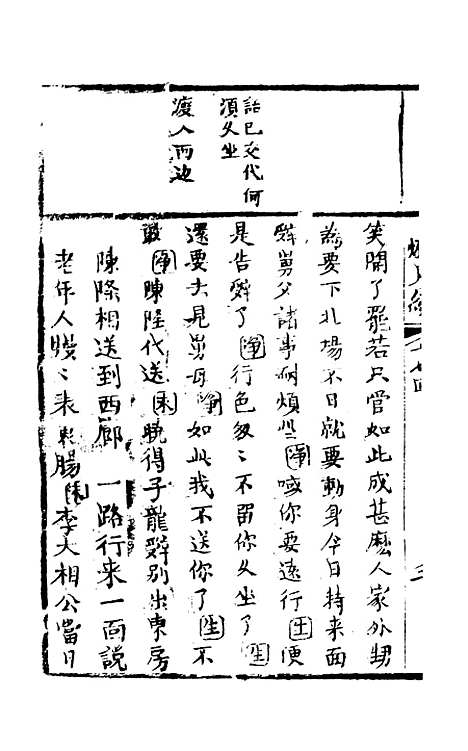 話已交代何
須久坐
渡入兩边
笑鬧了罷若只管如此成甚麽人家外甥
為要下北場不日就要動身今日特来面
辭舅父諸事耐煩些[淨]嗄你要遠行[生]便
是告辭了[淨]行色匆〻不留你久坐了[生]
還要去見舅母[淨]如此我不送你了[生]不
敢[淨]陳陞代送[末]曉得子龍辭别出東房
陳陞相送到西廊一路行来一面說
老年人熱腸[陳]李大相公當日